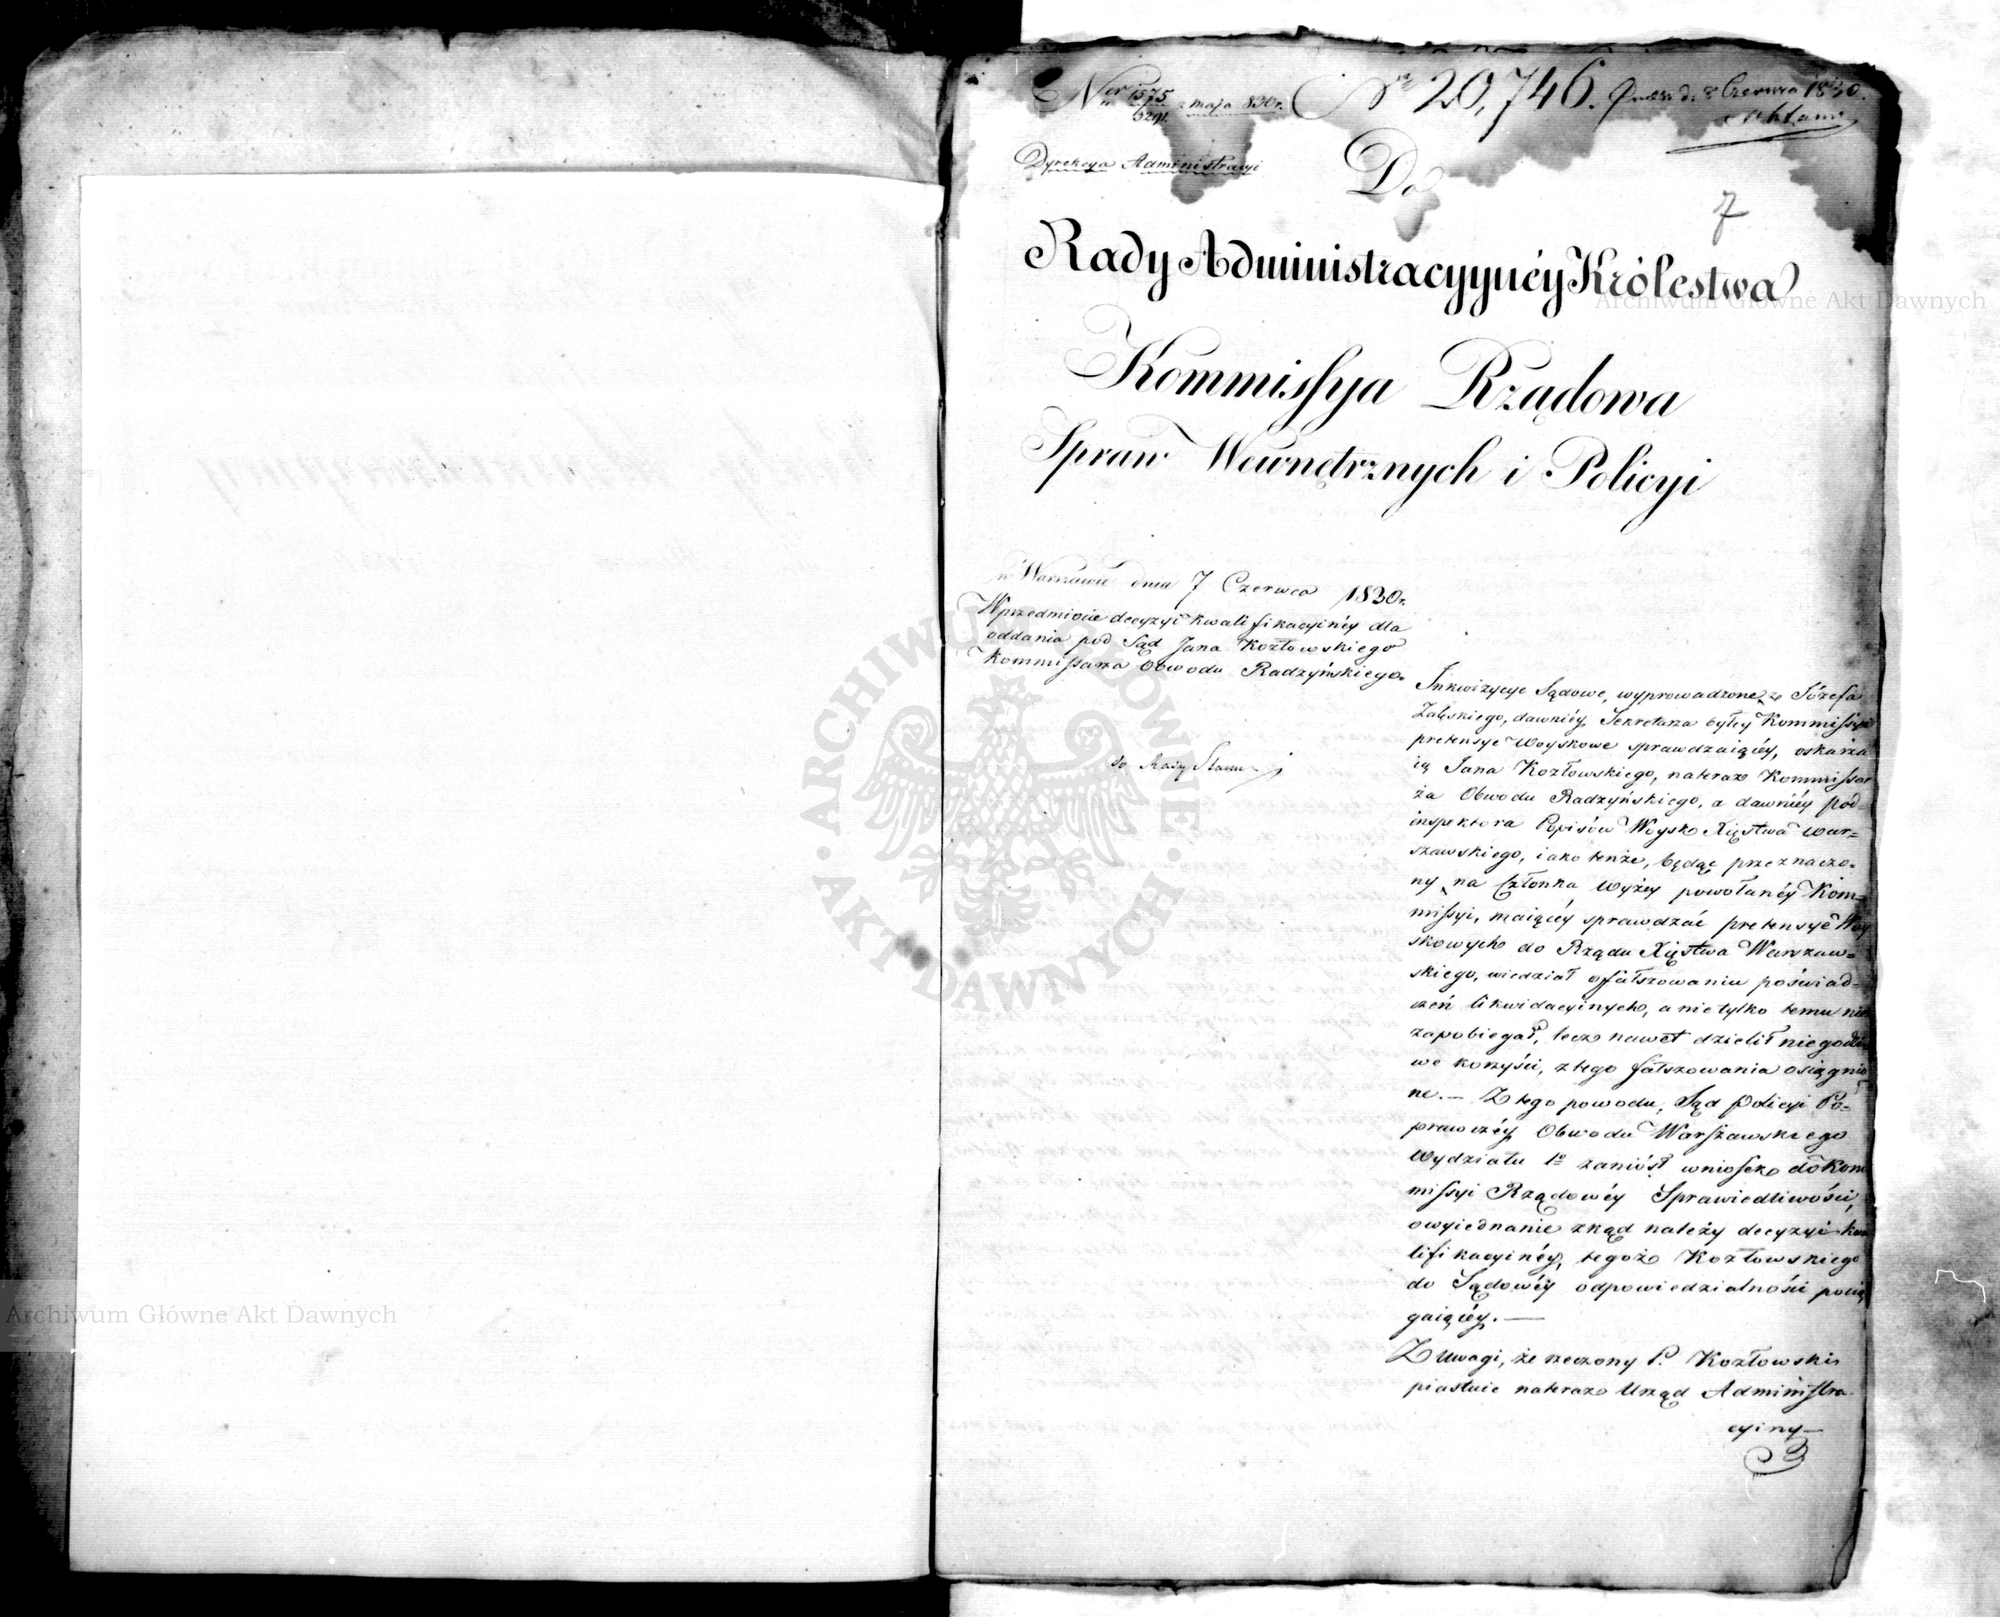 Ner 1575/3291. z maja 830r. Nr 20,746. Praes. d. 8 Czerwca 1830.
Dyrekcya Administracyi
Do
7
Rady Administracyynéy Królestwa
Kommissya Rządowa
Spraw Wewnętrznych i Policyi
w Warszawie dnia 7 Czerwca 1830r.
W przedmiocie decyzyi kwalifikacyinéy dla
oddania pod Sąd Jana Kozłowskiego
Kommissarza Obwodu Radzyńskiego.
do Rady Stanu
Inkwizycye Sądowe, wyprowadzone z Józefa
Zalęskiego, dawniéy Sekretarza byłéy Kommissyi
pretensye Woyskowe sprawdzaiącéy, oskarża
ią Jana Kozłowskiego, nateraz Kommissar
za Obwodu Radzyńskiego, a dawniéy pod=
inspektora Popisów Woysk Xięstwa War=
szawskiego, iako tenże, będąc przeznaczo=
ny na Członka wyżéy powołanéy Kom=
missyi, maiącéy sprawdzać pretensye Woy
skowych do Rządu Xięstwa Warszaw=
skiego, wiedział o fałszowaniu poświad=
czeń likwidacyinych, a nie tylko temu nie
zapobiegał, lecz nawet dzielił niegodzi
we korzyści, z tego fałszowania osiągnio
ne. — Z tego powodu, Sąd Policyi Po=
prawczéy Obwodu Warszawskiego
Wydziału 1o zaniósł wniosek do Kom
missyi Rządowéy Sprawiedliwości,
o wyiednanie zkąd należy decyzyi kwa
lifikacyinéy, tegoż Kozłowskiego
do Sądowéy odpowiedzialności pocią
gaiącéy. —
Z uwagi, że rzeczony P. Kozłowski
piastuie nateraz Urząd Administra
cyiny —
Archiwum Główne Akt Dawnych
Archiwum Główne Akt Dawnych
ARCHIWUM GŁÓWNE
AKT DAWNYCH